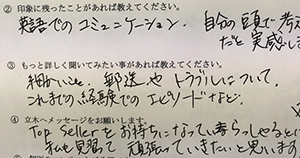 ② 印象に残ったことがあれば教えてください。
英語でのコミュニケーション. 自分の頭で考え
だと実感し
③ もっと詳しく聞いてみたい事があれば教えてください。
細かいこと. 郵送やトラブルについて.
これまでの経験でのエピソードなど.
④ 立木へメッセージをお願いします.
Top Sellerをお持ちになっていらっしゃると
私も見習って頑張っていきたいと思います